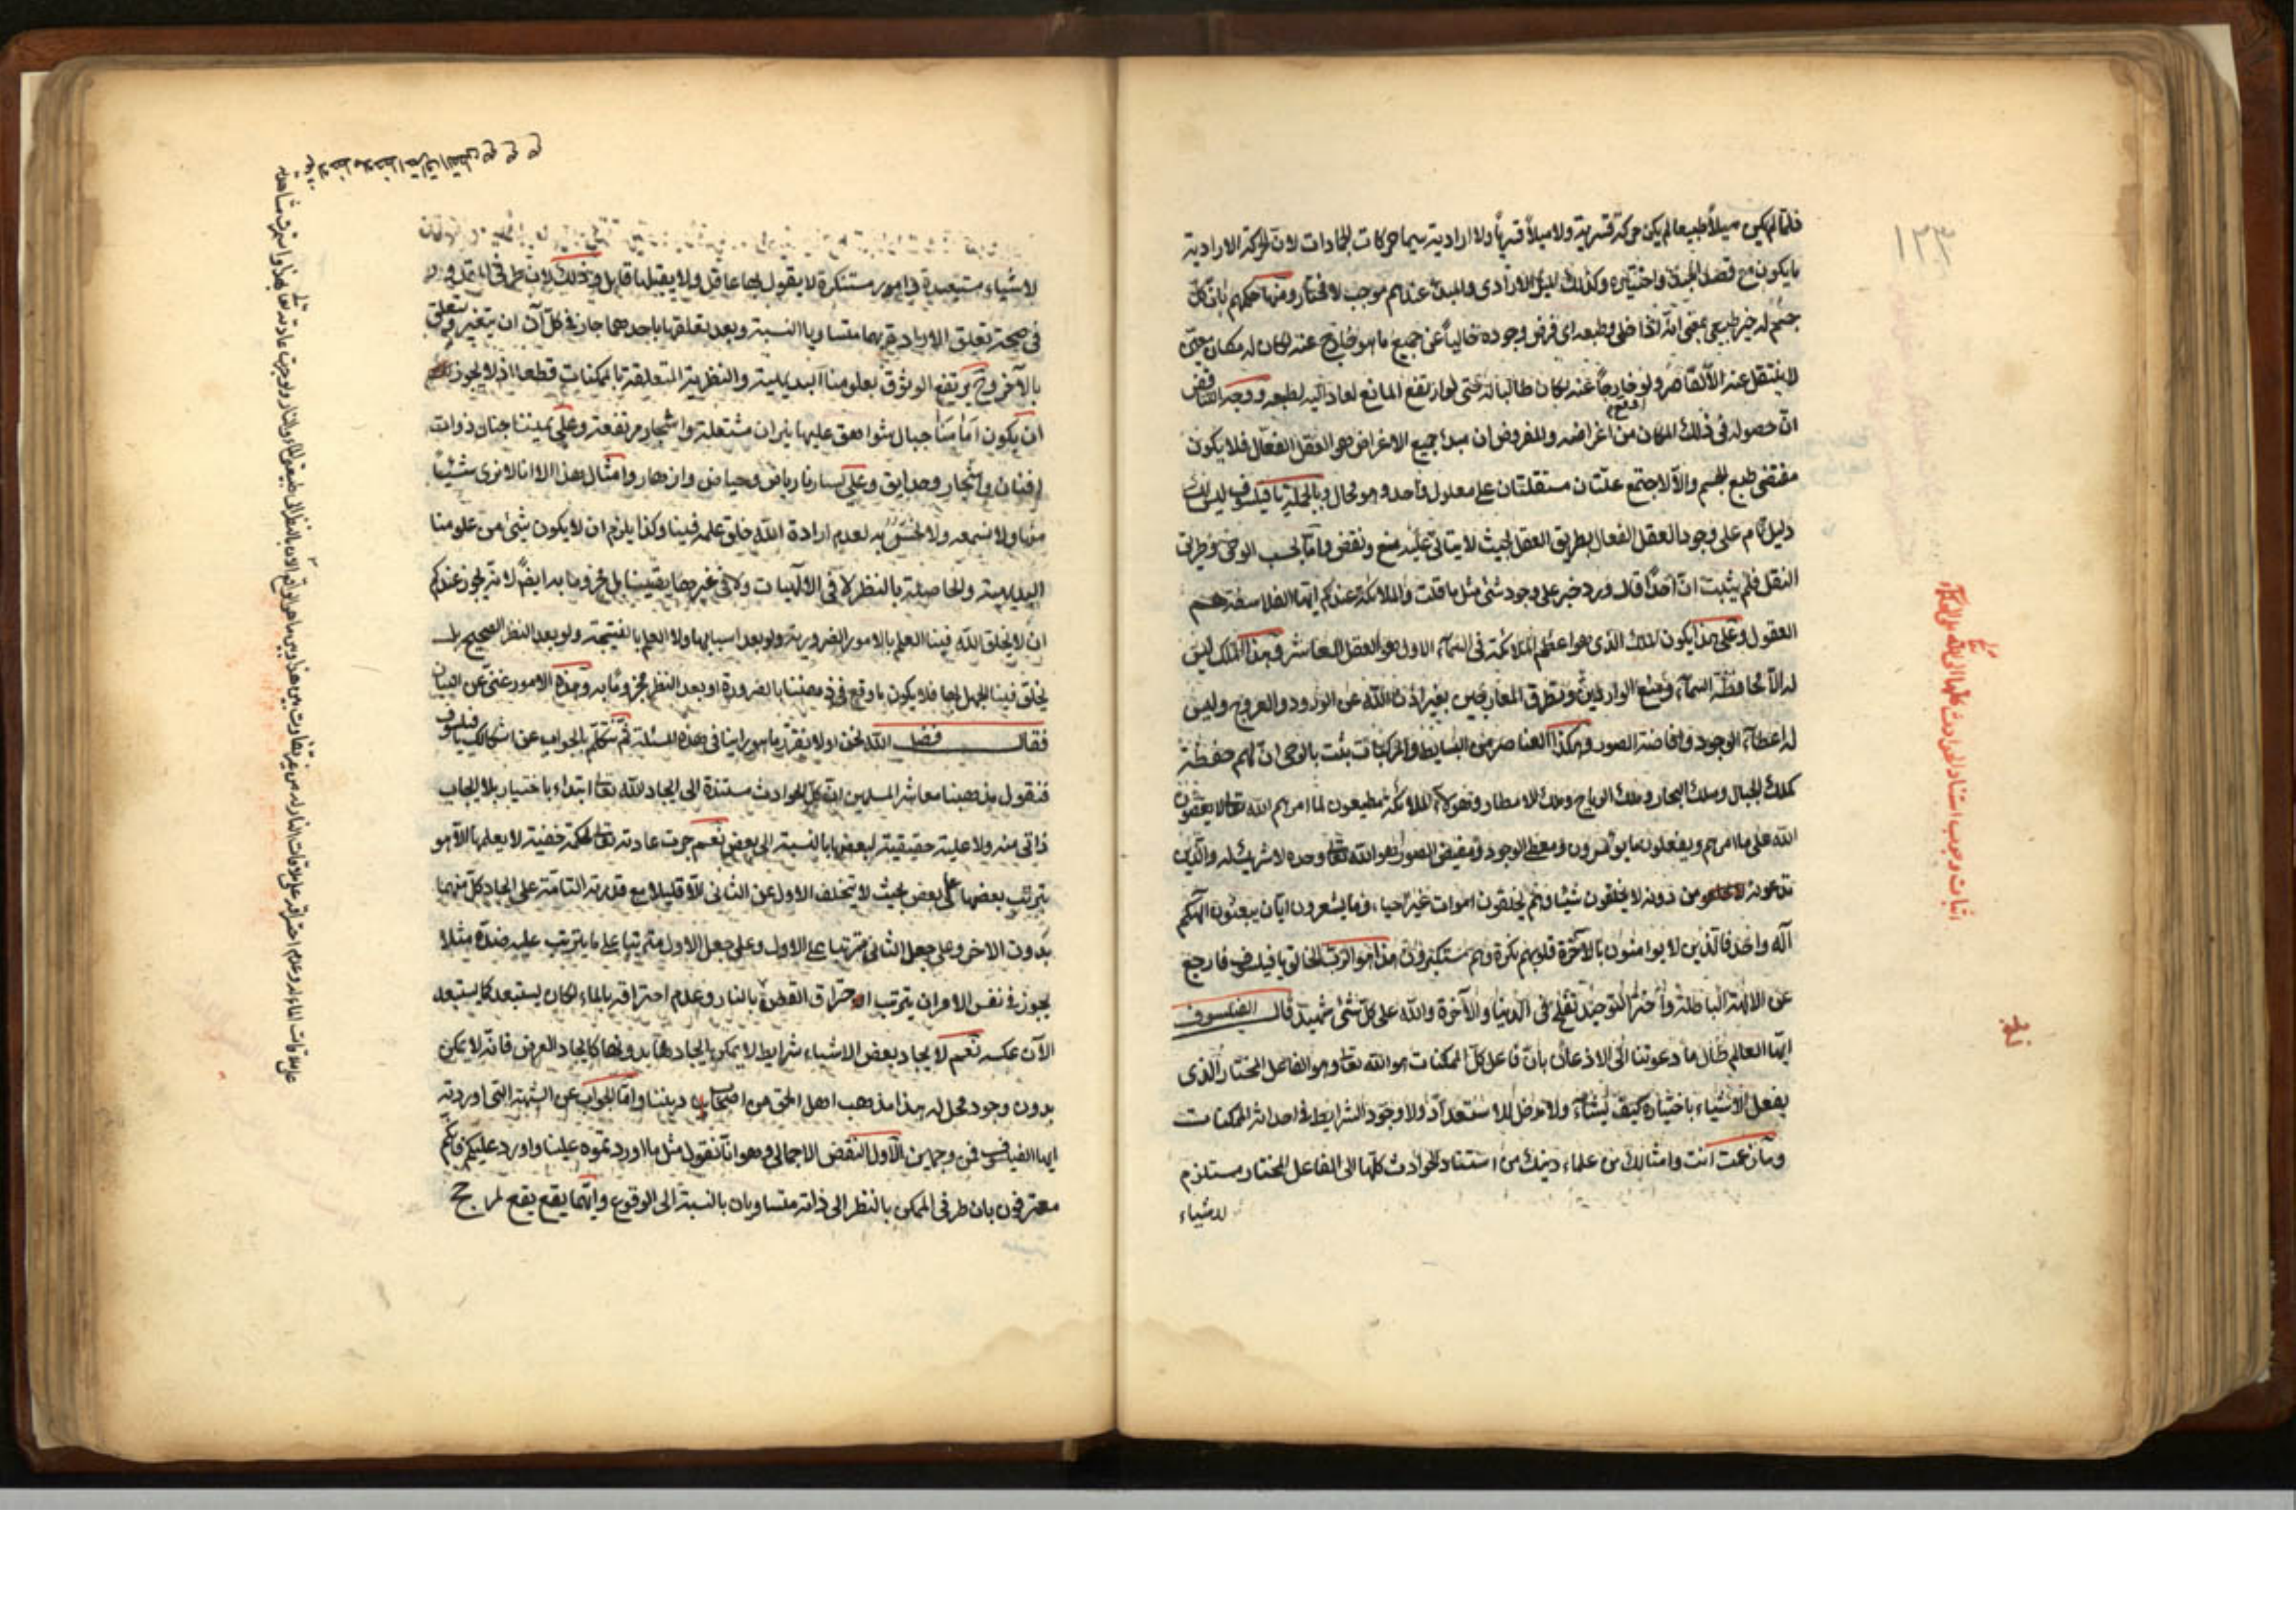 ١٢٣
فلما لم يكن ميلاً طبيعيا لم يكن حركة قسرية ولا ميلاً قسرياً ولا ارادية سيما حركات الجمادات لان الحركة الارادية
ما يكون مع قصد المبدئ واختياره وكذلك الميل الارادى والمبدئ عندهم موجب لا مختار ومنها حكمهم بان كل
جسم له حيز طبيعى بمعنى انه اذا خلى وطبعه اى فرض وجوده خالياً عن جميع ما هو خارج عنه لكان له مكان حتى
لا ينتقل عنه الا لقاصر ولو خارجاً عنه لكان طالبا له حتى لو ارتفع المانع لعاد اليه لطبعه ووجه النقض
ان حصوله فى ذلك المكان من اعراضه والمفروض ان مبدئ جميع الاعراض هو العقل الفعال فلا يكون
مقتضى طبع الجسم والا لاجتمع علتان مستقلتان على معلول واحد وهو محال وبالجملة يا فيلسوف ليس لك
دليل تام على وجود العقل الفعال بطريق العقل بحيث لا يتأتى عليه منع ونقض واما بحسب الوحى وطريق
النقل فلم يثبت ان احداً قال ورد خبر على وجود شئ مثل ما قلت والملائكة عندكم ايها الفلاسفة هم
العقول وعلى هذا يكون الملك الذى هو اعظم الملائكة فى السماء الاول هو العقل العاشر وهذا الملك ليس
له الا محافظة السماء ومنع الواردين وتطرق المعارجين بغير اذن الله عن الورود والعروج وليس
له اعطاء الوجود وافاضة الصور وهكذا العناصر من البسايط والمركبات بثت بالوحى ان لهم حفظة
كملك الجبال وملك البحار وملك الرياح وملك الامطار وهؤلاء الملائكة مطيعون لما امرهم الله تعالى لا يعصون
الله على ما امرهم ويفعلون ما يؤمرون ومعطى الوجود ومفيض الصور هو الله تعالى وحده لا شريك له والذين
تدعون من دونه لا يخلقون شيئا وهم يخلقون اموات غير احياء وما يشعرون ايان يبعثون الهكم
اله واحد فالذين لا يؤامنون بالآخرة قلوبهم نكرة وهم مستكبرون هذا هو الرب الخالق يا فيلسوف فارجع
عن الالهة الباطلة واختر التوحيد تفلح فى الدنيا والآخرة والله على كل شئ شهيد قال الفيلسوف
ايها العالم طال ما دعوتنا الى الاذعان بان فاعل كل الممكنات هو الله تعالى وهو الفاعل المختار الذى
يفعل الاشياء باختياره كيف يشاء ولا مدخل للاستعداد ولا وجود الشرايط فى احداث الممكنات
وما زعمت انت وامثالك من علماء دينك من استناد الحوادث كلها الى الفاعل المختار مستلزم
لاشياء
اثبات وجوب استناد الحوادث كلها الى الله على الحكماء
لاشياء مستبعدة وامور مستنكرة لا يقول بها عاقل ولا يقبلها قابل وذلك لان طرفى
فى صحة تعلق الارادة بهما متساويا النسبة وبعد تعلقها باحدهما جاز فى كل آن ان يتغير ويتعلق
بالآخر وح يرتفع الوثوق بعلومنا البديهية والنظرية المتعلقة بالممكنات قطعا اذ لا يجوز
ان يكون امامنا جبال شواهق عليها نيران مشتعلة واشجار مرتفعة وعلى يميننا جنان ذوات
افنان واشجار وحدايق وعلى يسارنا رياض وحياض وازهار وامثال هذا الا انا لا نرى شيئاً
منها ولا نسمعه ولا نحس به لعدم ارادة الله خلق علمه فينا وكذا يلزم ان لا يكون شئ من علومنا
البديهية والحاصلة بالنظر لا فى الالهيات ولا فى غيرها يقينيا بل مجزوما به ايضاً لانه يجوز عندكم
ان لا يخلق الله فينا العلم بالامور الضرورية ولو بعد اسبابها ولا العلم بالنتيجة ولو بعد النظر الصحيح بل
يخلق فينا الجهل بها فلا يكون ما وقع فى ذهننا بالضرورة او بعد النظر مجزوما به وهذه الامور غنى عن البيان
فقال فضل الله نحن اولا نقرر ما هو راينا فى هذه المسئلة ثم نتكلم بالجواب عن اشكالك يا فيلسوف
فنقول مذهبنا معاشر المسلمين ان كل الحوادث مستندة الى ايجاد الله تعالى ابتداء باختيار بلا ايجاب
ذاتى منه ولا علية حقيقية لبعضها بالنسبة الى بعض نعم جرت عادته تعالى لحكمة خفية لا يعلمها الا هو
بترتب بعضها على بعض بحيث لا يتخلف الاول عن الثانى الا قليلا مع قدرته التامة على ايجاد كل منهما
بدون الاخر وعلى جعل الثانى مترتبا على الاول وعلى جعل الاول مترتبا على ما يترتب عليه ضده مثلا
يجوز فى نفس الامر ان يترتب احتراق القطن بالنار وعدم احتراقه بالماء لكان يستبعد كما يستبعد
الآن عكسه نعم لايجاد بعض الاشياء شرايط لا يمكن ايجادها بدونها كايجاد العرض فانه لا يمكن
بدون وجود محل له هذا مذهب اهل الحق من اصحاب ديننا واما الجواب عن الشبهة التى اوردته
ايها الفيلسوف فمن وجهين الاول النقض الاجمالى وهو انا نقول مثل ما اوردتموه علينا وارد عليكم فانكم
معترفون بان طرفى الممكن بالنظر الى ذاته متساويان بالنسبة الى الوقوع وايهما يقع يقع لمرجح